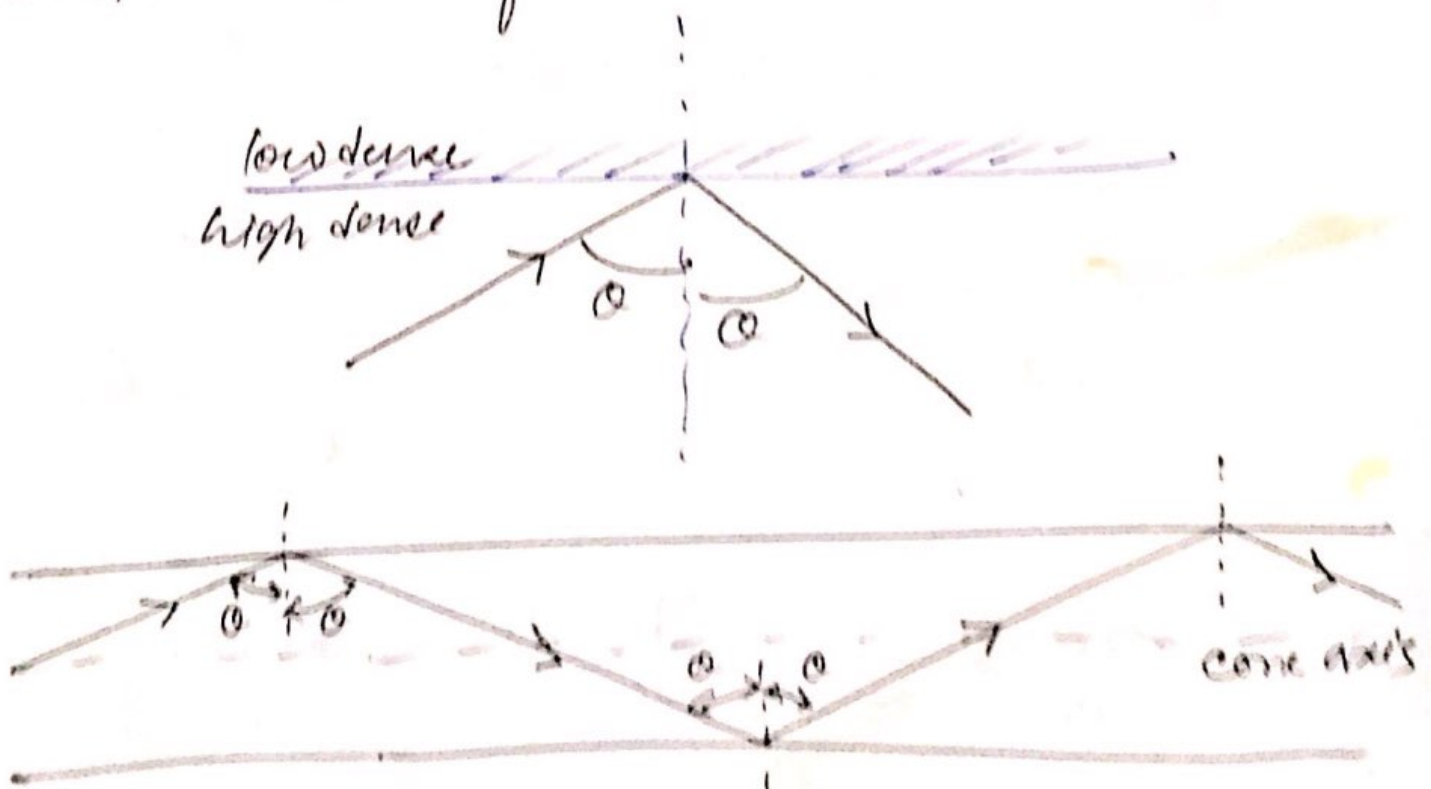 low dense
high dense
θ
θ
θ θ
θ θ
core axis